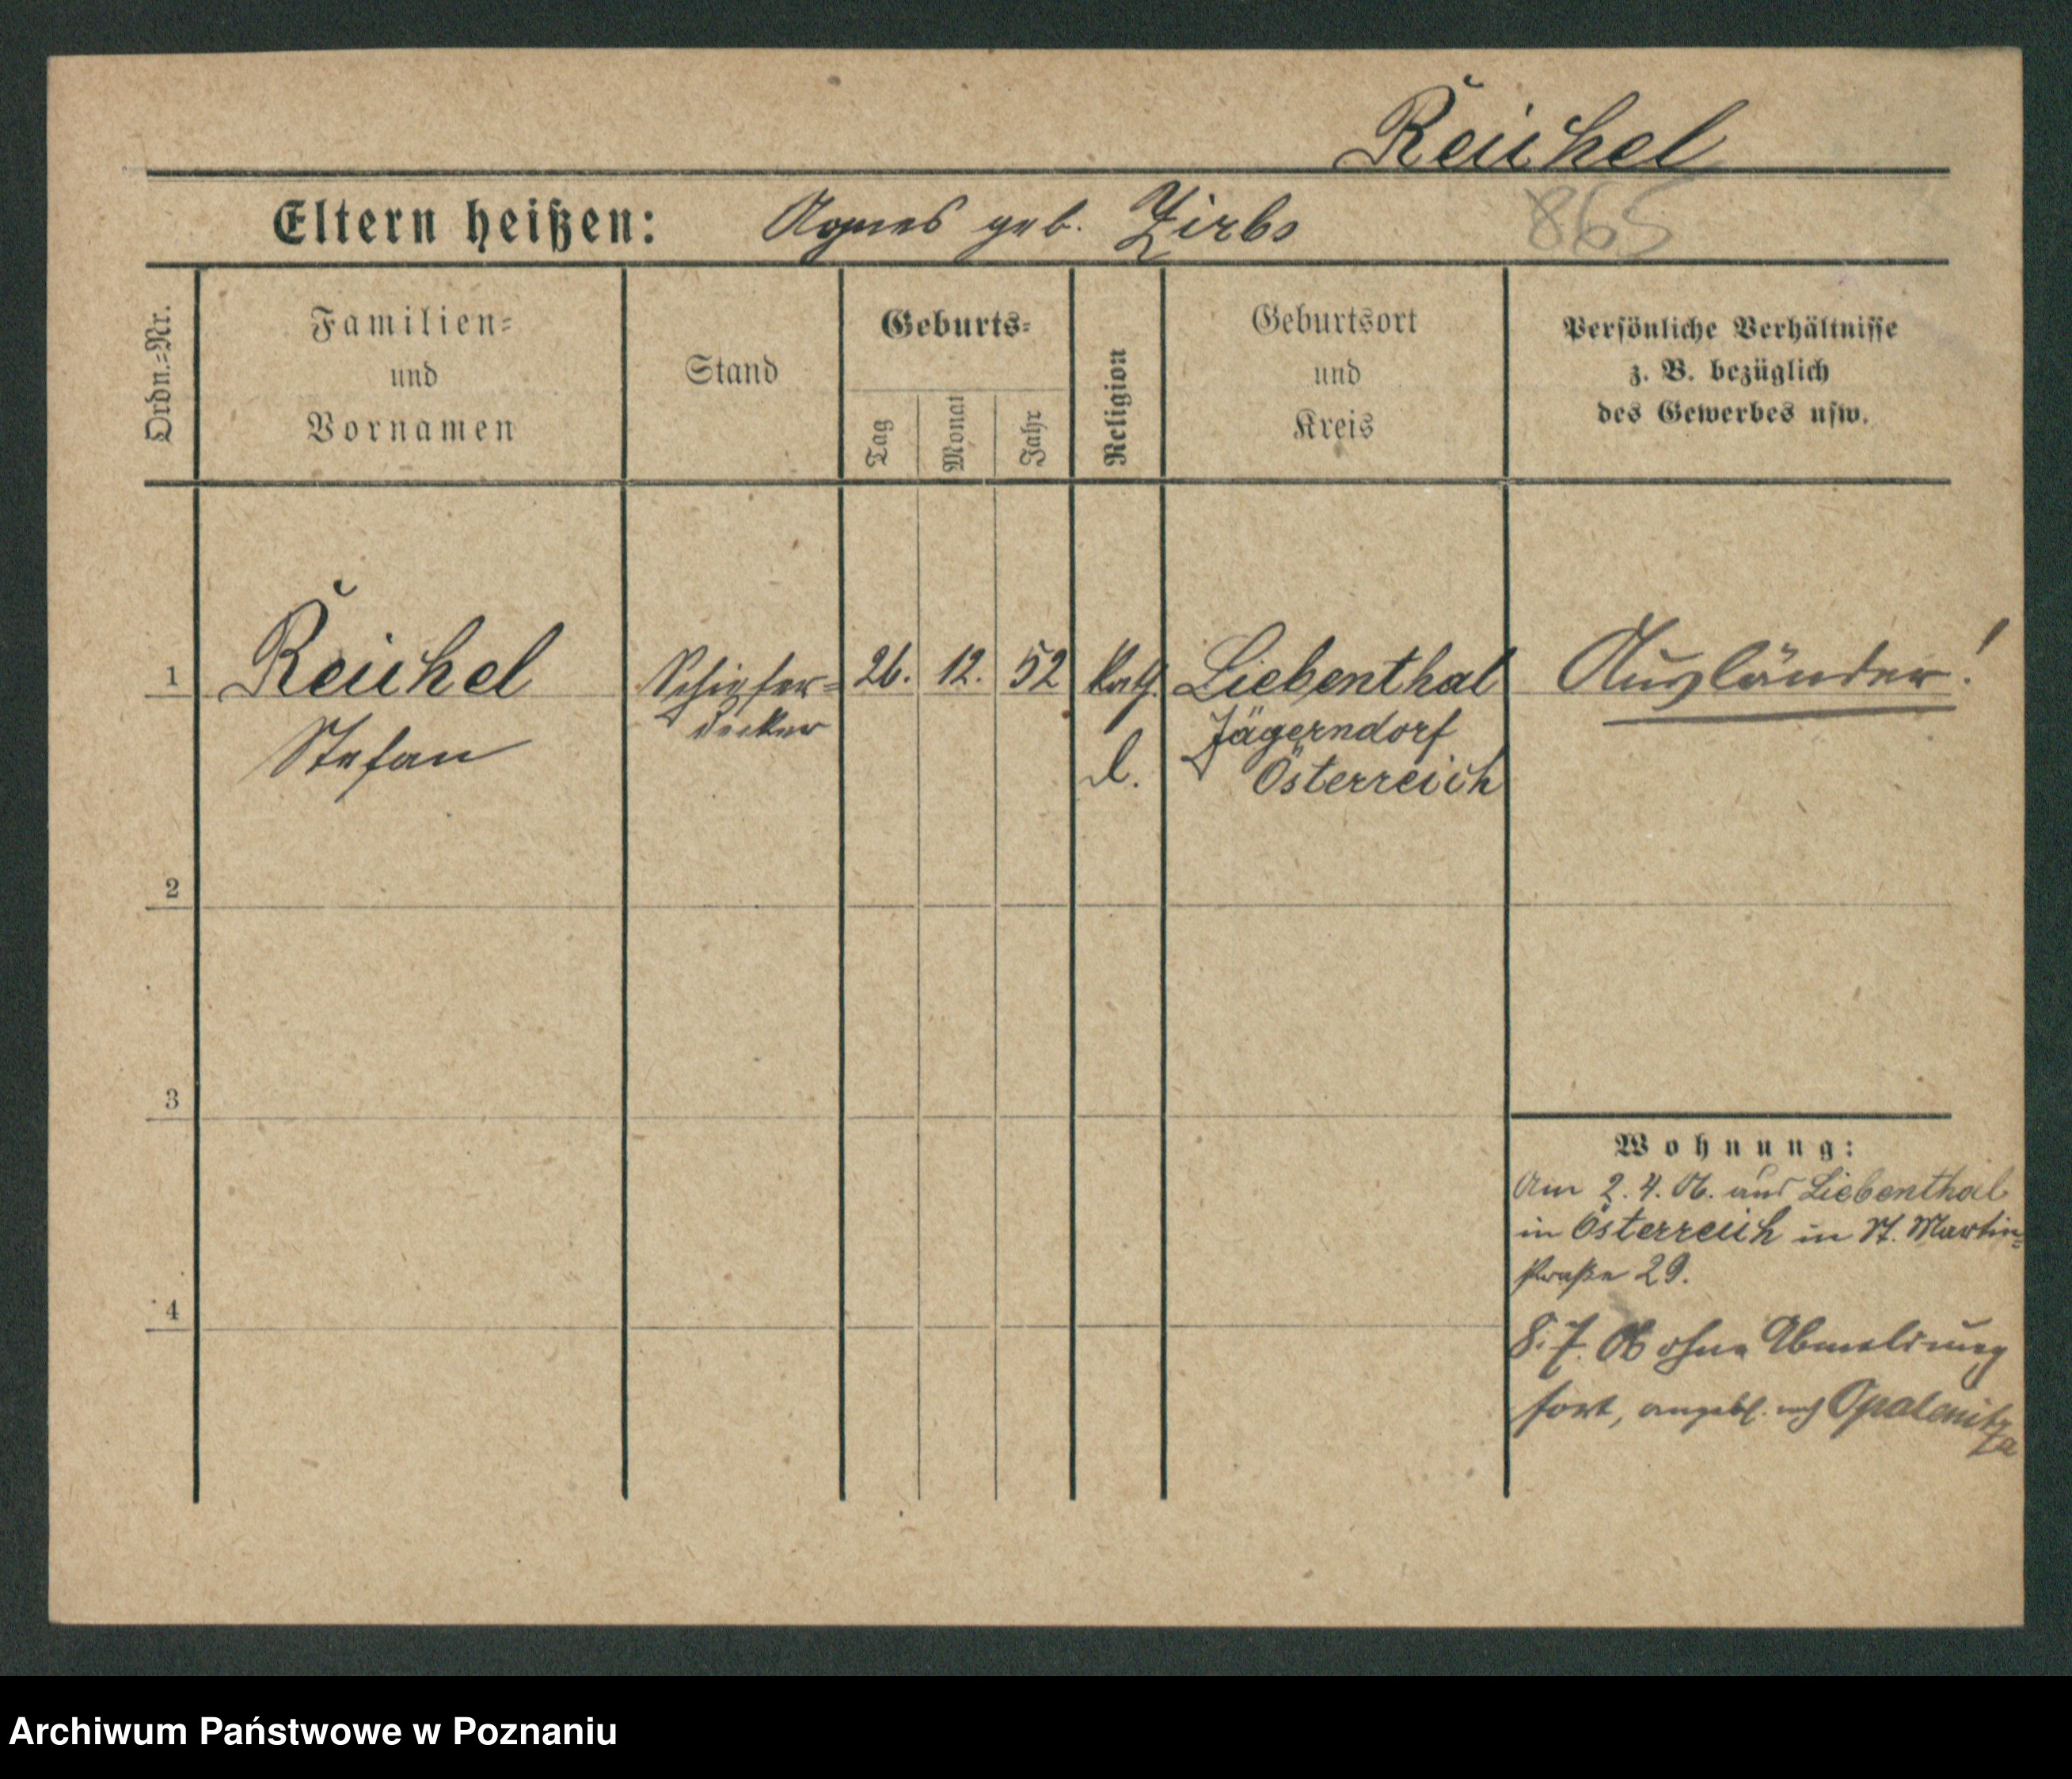 Reichel
Eltern heißen: Agnes geb. Zirbs
865
Ordn.=Nr.
Familien=
und
Vornamen
Stand
Geburts=
Tag
Monat
Jahr
Religion
Geburtsort
und
Kreis
Persönliche Verhältnisse
z. B. bezüglich
des Gewerbes usw.
1 Reichel Schiefer= 26. 12. 52 kath. Liebenthal Ausländer!
Stefan decker l. Jägerndorf
Österreich
2
3
4
Wohnung:
Am 2. 4. 06. aus Liebenthal
in Österreich in St. Martin=
straße 29.
8. 7. 06 ohne Abmeldung
fort, angebl. nach Opalenitz
za
Archiwum Państwowe w Poznaniu